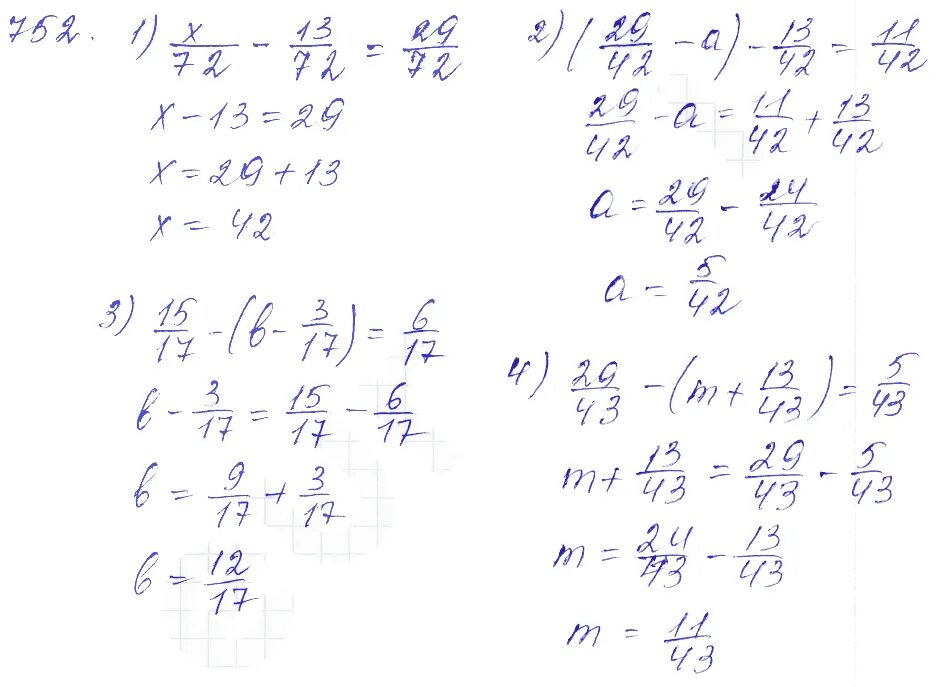 752. 1) x/72 - 13/72 = 29/72
x - 13 = 29
x = 29 + 13
x = 42
2) (29/42 - a) - 13/42 = 11/42
29/42 - a = 11/42 + 13/42
a = 29/42 - 24/42
a = 5/42
3) 15/17 - (b - 3/17) = 6/17
b - 3/17 = 15/17 - 6/17
b = 9/17 + 3/17
b = 12/17
4) 29/43 - (m + 13/43) = 5/43
m + 13/43 = 29/43 - 5/43
m = 24/43 - 13/43
m = 11/43